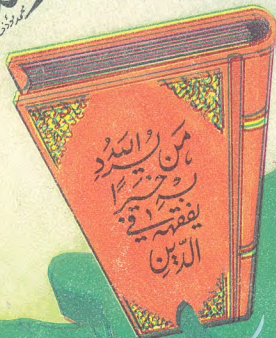 مَن يُرِدِ اللّٰهُ
بِهِ خَيْرًا
يُفَقِّهْهُ فِي
الدِّينِ